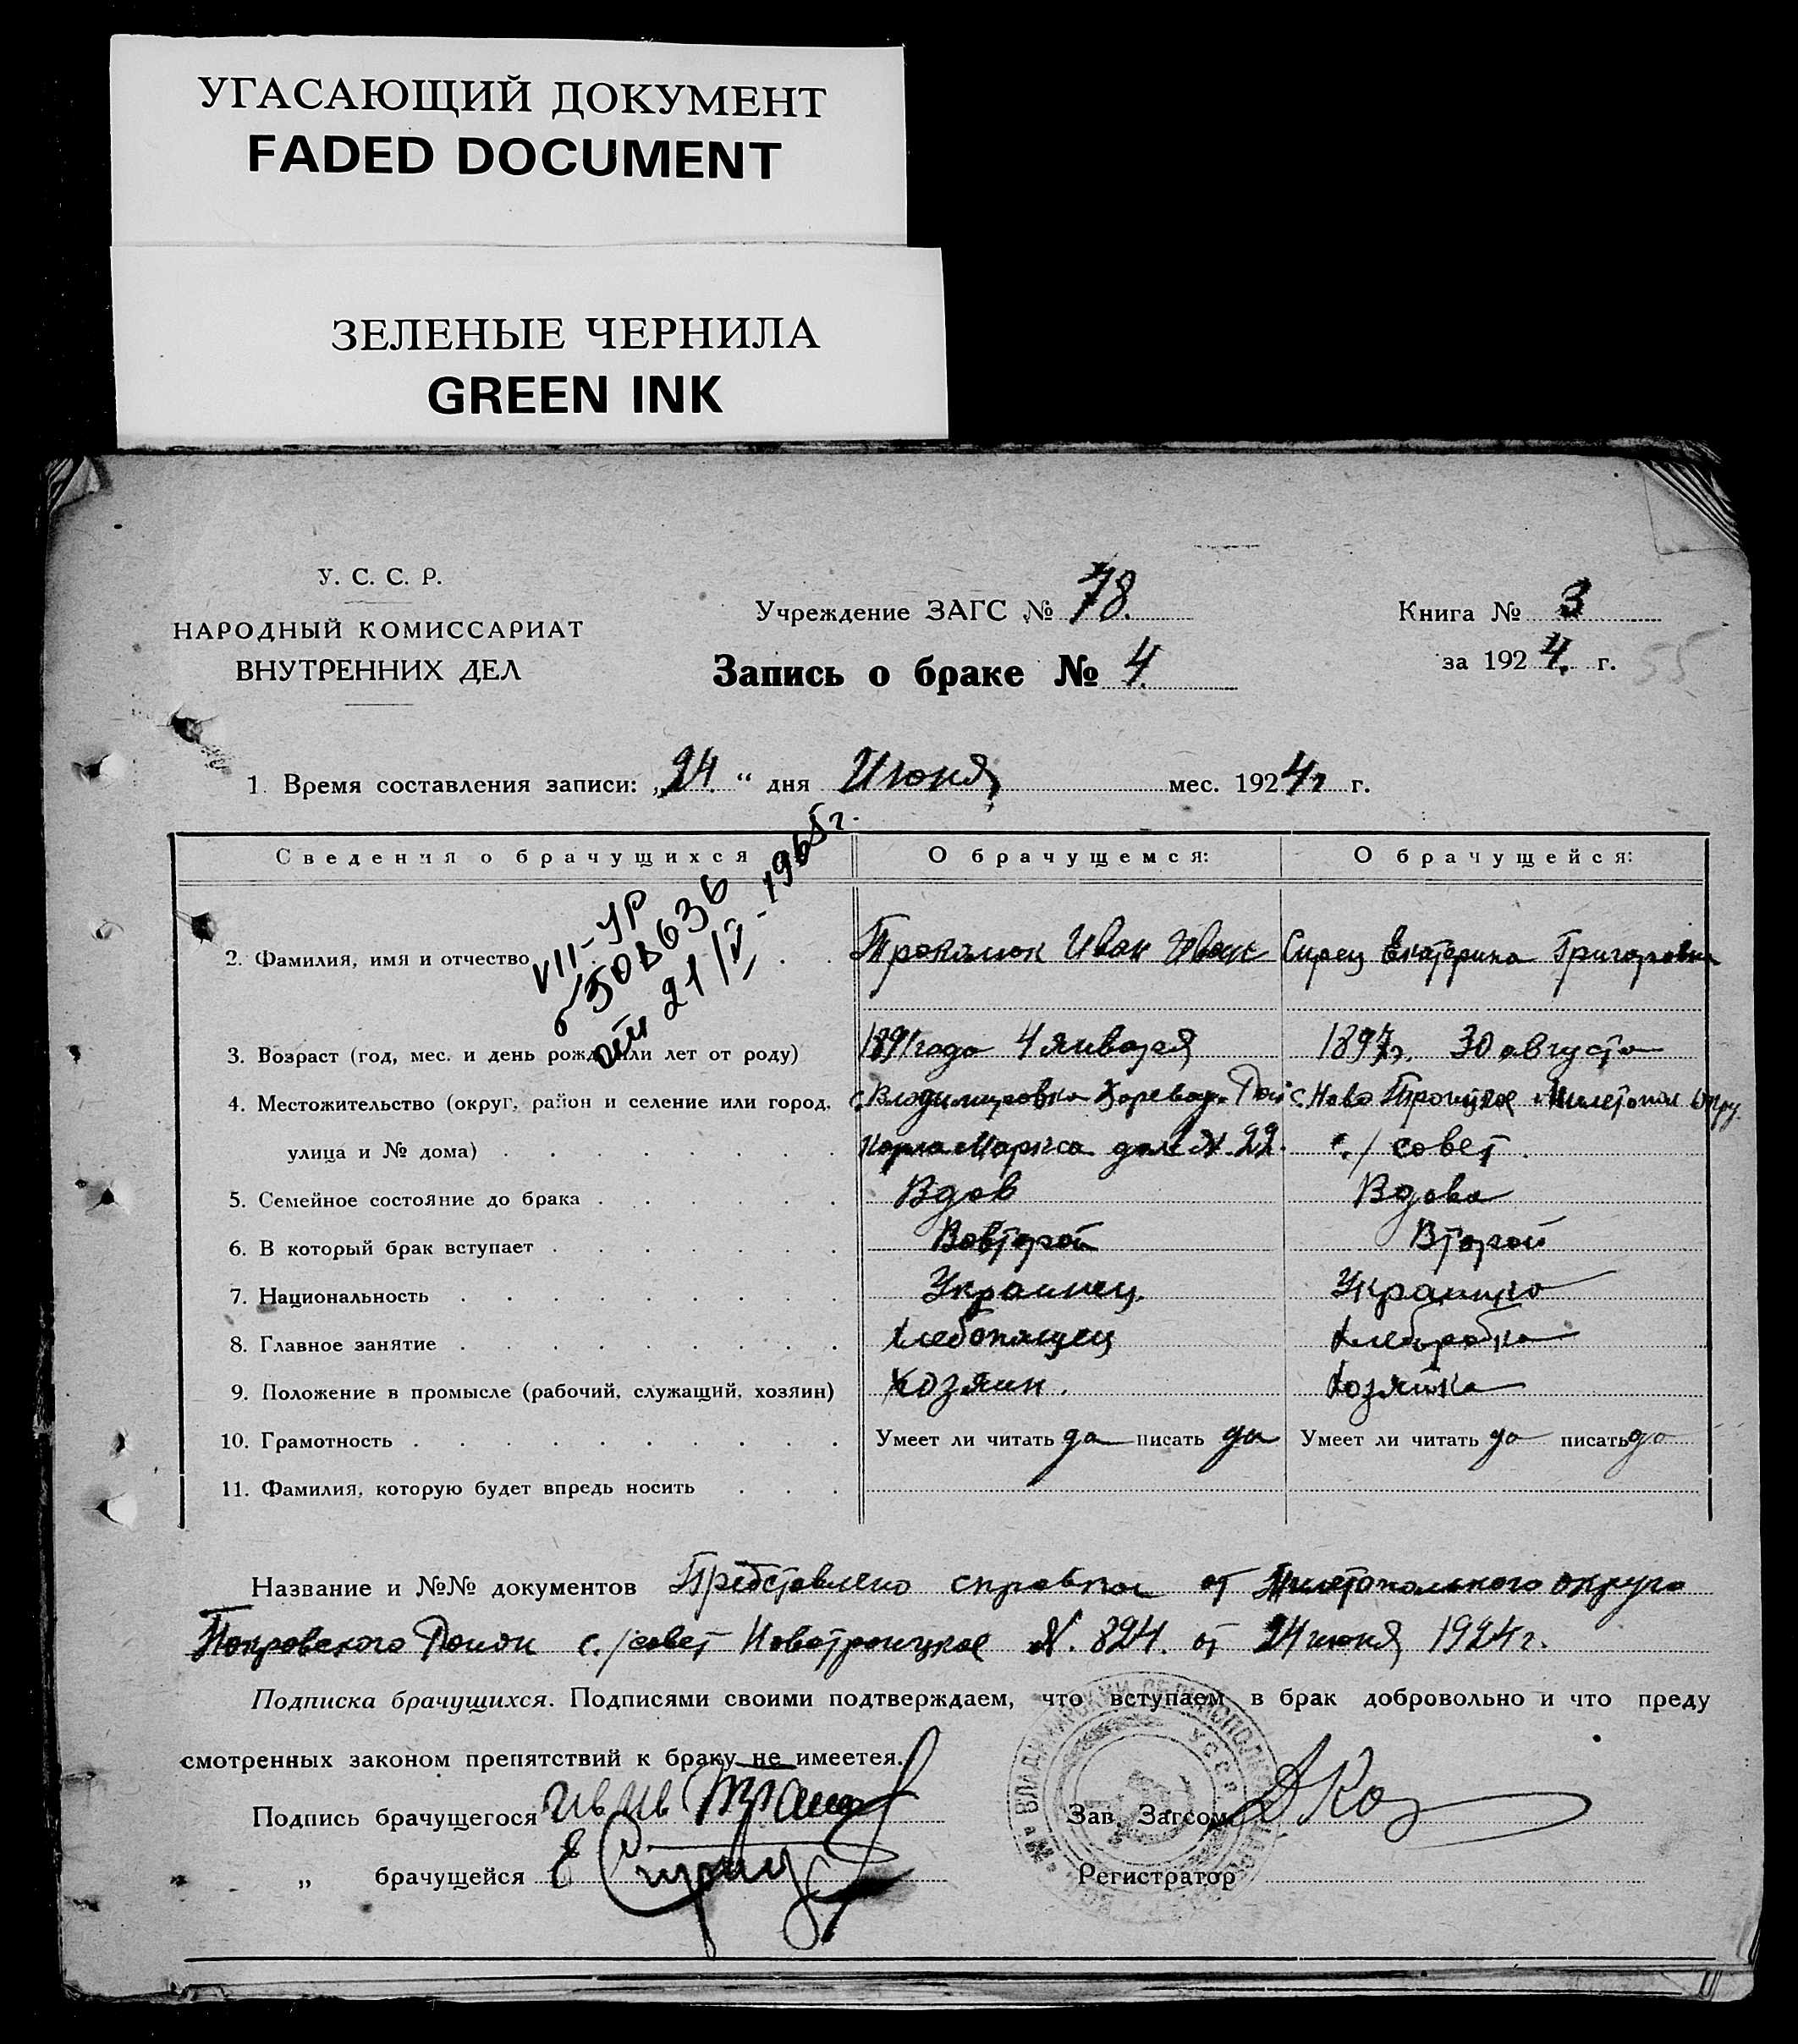 УГАСАЮЩИЙ ДОКУМЕНТ
FADED DOCUMENT
ЗЕЛЕНЫЕ ЧЕРНИЛА
GREEN INK
У. С. С. Р.
НАРОДНЫЙ КОМИССАРИАТ
ВНУТРЕННИХ ДЕЛ
Учреждение ЗАГС № 78.
Запись о браке № 4.
Книга № 3
за 1924. г.
55
1. Время составления записи: „24.“ дня Июня мес. 1924г г.
Сведения о брачущихся О брачущемся: О брачущейся:
VII-ЯР
508636
от 21/V-1965г.
2. Фамилия, имя и отчество Иван Иван Екатерина Григоровна
3. Возраст (год, мес. и день рожд. или лет от роду) 1891 года 4 января 1897г. 30 августа
4. Местожительство (округ, район и селение или город, с. Владимировка с. Ново Троицкое
улица и № дома) Карла Маркса дом № 22. с./совет.
5. Семейное состояние до брака Вдов Вдова
6. В который брак вступает Вовторой Второй
7. Национальность Украинец.
8. Главное занятие Хлебопашец Хлебробка
9. Положение в промысле (рабочий, служащий, хозяин) Хозяин. Хозяйка
10. Грамотность Умеет ли читать да писать да Умеет ли читать да писать да
11. Фамилия, которую будет впредь носить
Название и №№ документов Представлено справка от округа
Покровского Район с./совет Новотроицкое №. 824. от 24 июня 1924г.
Подписка брачущихся. Подписями своими подтверждаем, что вступаем в брак добровольно и что преду
смотренных законом препятствий к браку не имеетея.
Подпись брачущегося
„ брачущейся Е
Зав. Загсом
Регистратор
УССР